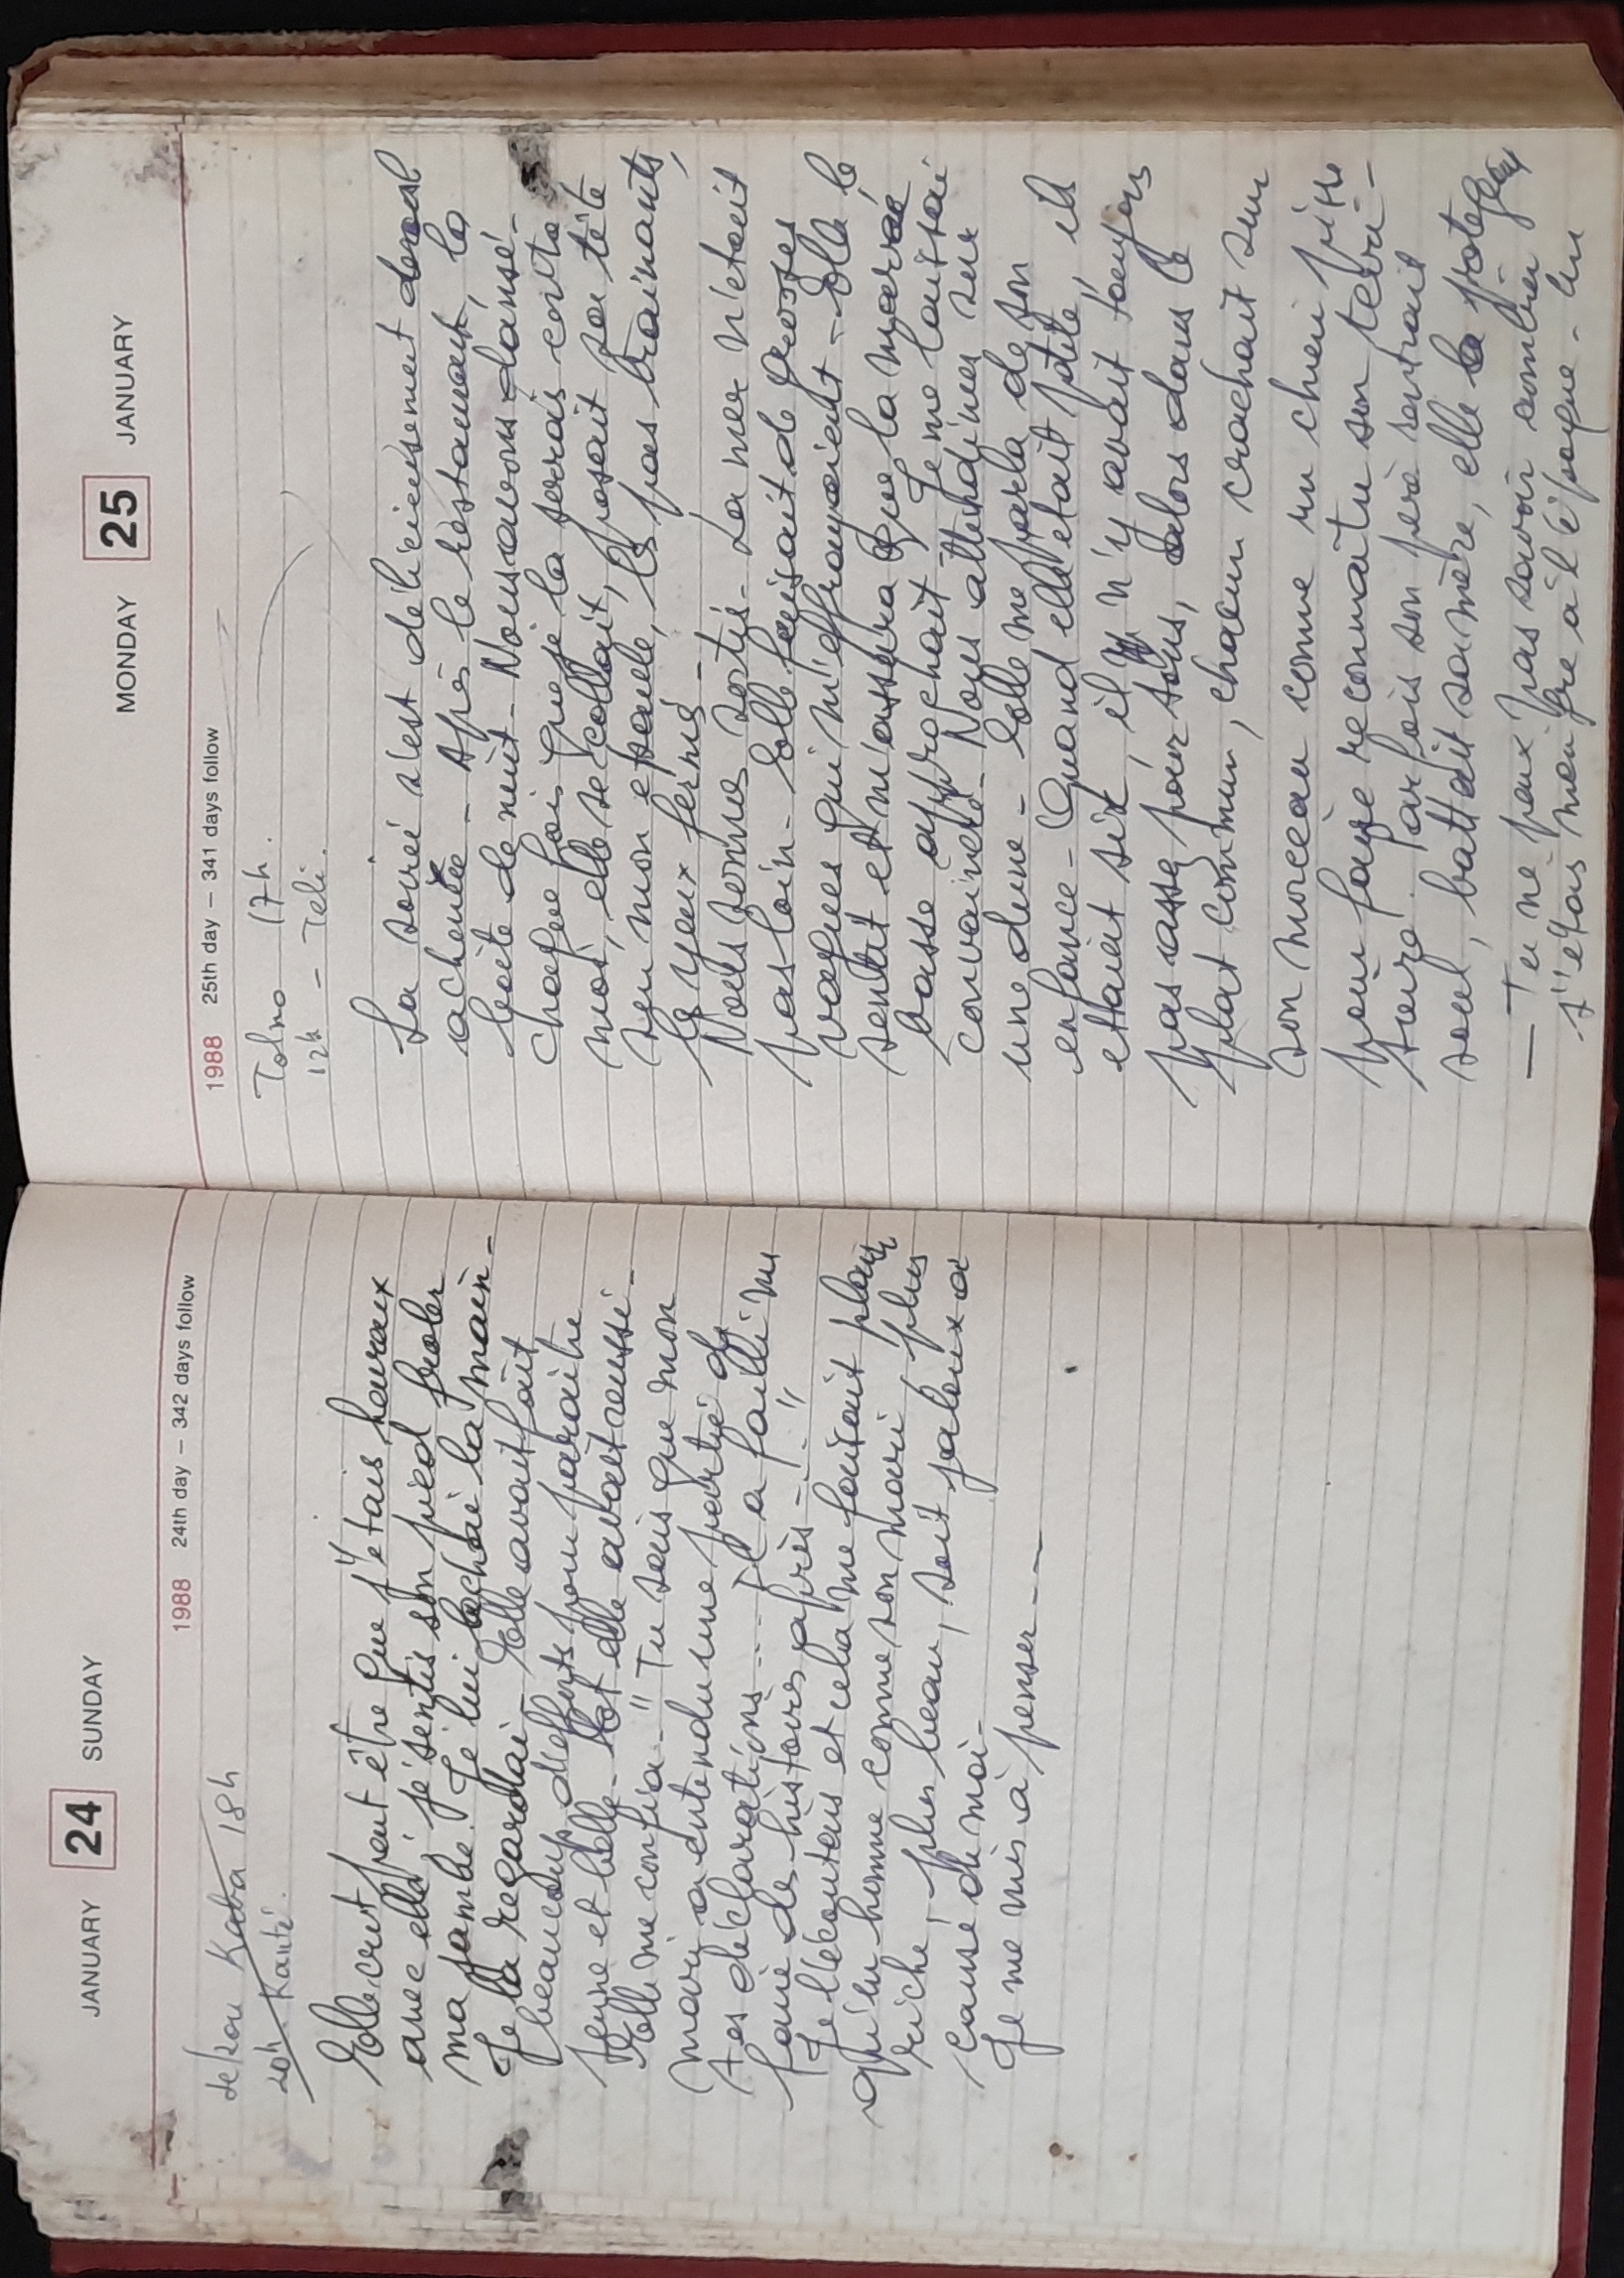 JANUARY 24 SUNDAY
1988 24th day – 342 days follow
Sekou Kaba 18h
20h Kanté.
Elle crut peut être que j'étais heureux
avec elle, je sentis son pied froler
ma jambe. Je lui lachai la main -
Je la regardai - Elle avait fait
beaucoup d'efforts pour paraitre
jeune et belle - Et elle avait reussi -
Elle me confia - "Tu sais que mon
mari a entendu une partie de
tes déclarations... Il a failli me
faire des histoires après - - - "
Je l'écoutais et cela me faisait plaisir
qu'un homme comme son mari, plus
riche, plus beau, soit jaloux à
cause de moi -
Je me mis à penser - - -
MONDAY 25 JANUARY
1988 25th day – 341 days follow
Tolno 17h.
12h - Teli.
La soirée s'est délicieusement
achevée - Après le restaurant, la
boite de nuit - Nous avons dansé -
Chaque fois que je la serrais contre
moi, elle se collait, posait sa tête
sur mon epaule, les pas trainants,
les yeux fermés -
Nous sommes sortis - La mer n'etait
pas loin - Elle faisait de grosses
vagues qui m'effrayaient - Elle le
sentit et m'assura que la marée
basse approchait - Je me laissai
convaincre - Nous attendimes sur
une dune - Elle me parla de son
enfance - Quand elle était petite, ils
etaient six, il n'y avait toujours
pas assez pour tous, alors dans le
plat commun, chacun crachait sur
son morceau comme un chien pisse
pour faire reconnaitre son terri-
toire. Parfois son père rentrait
soul, battait sa mère, elle la protegeait
— Tu ne peux pas savoir combien
j'étais maigre à l'époque - Un